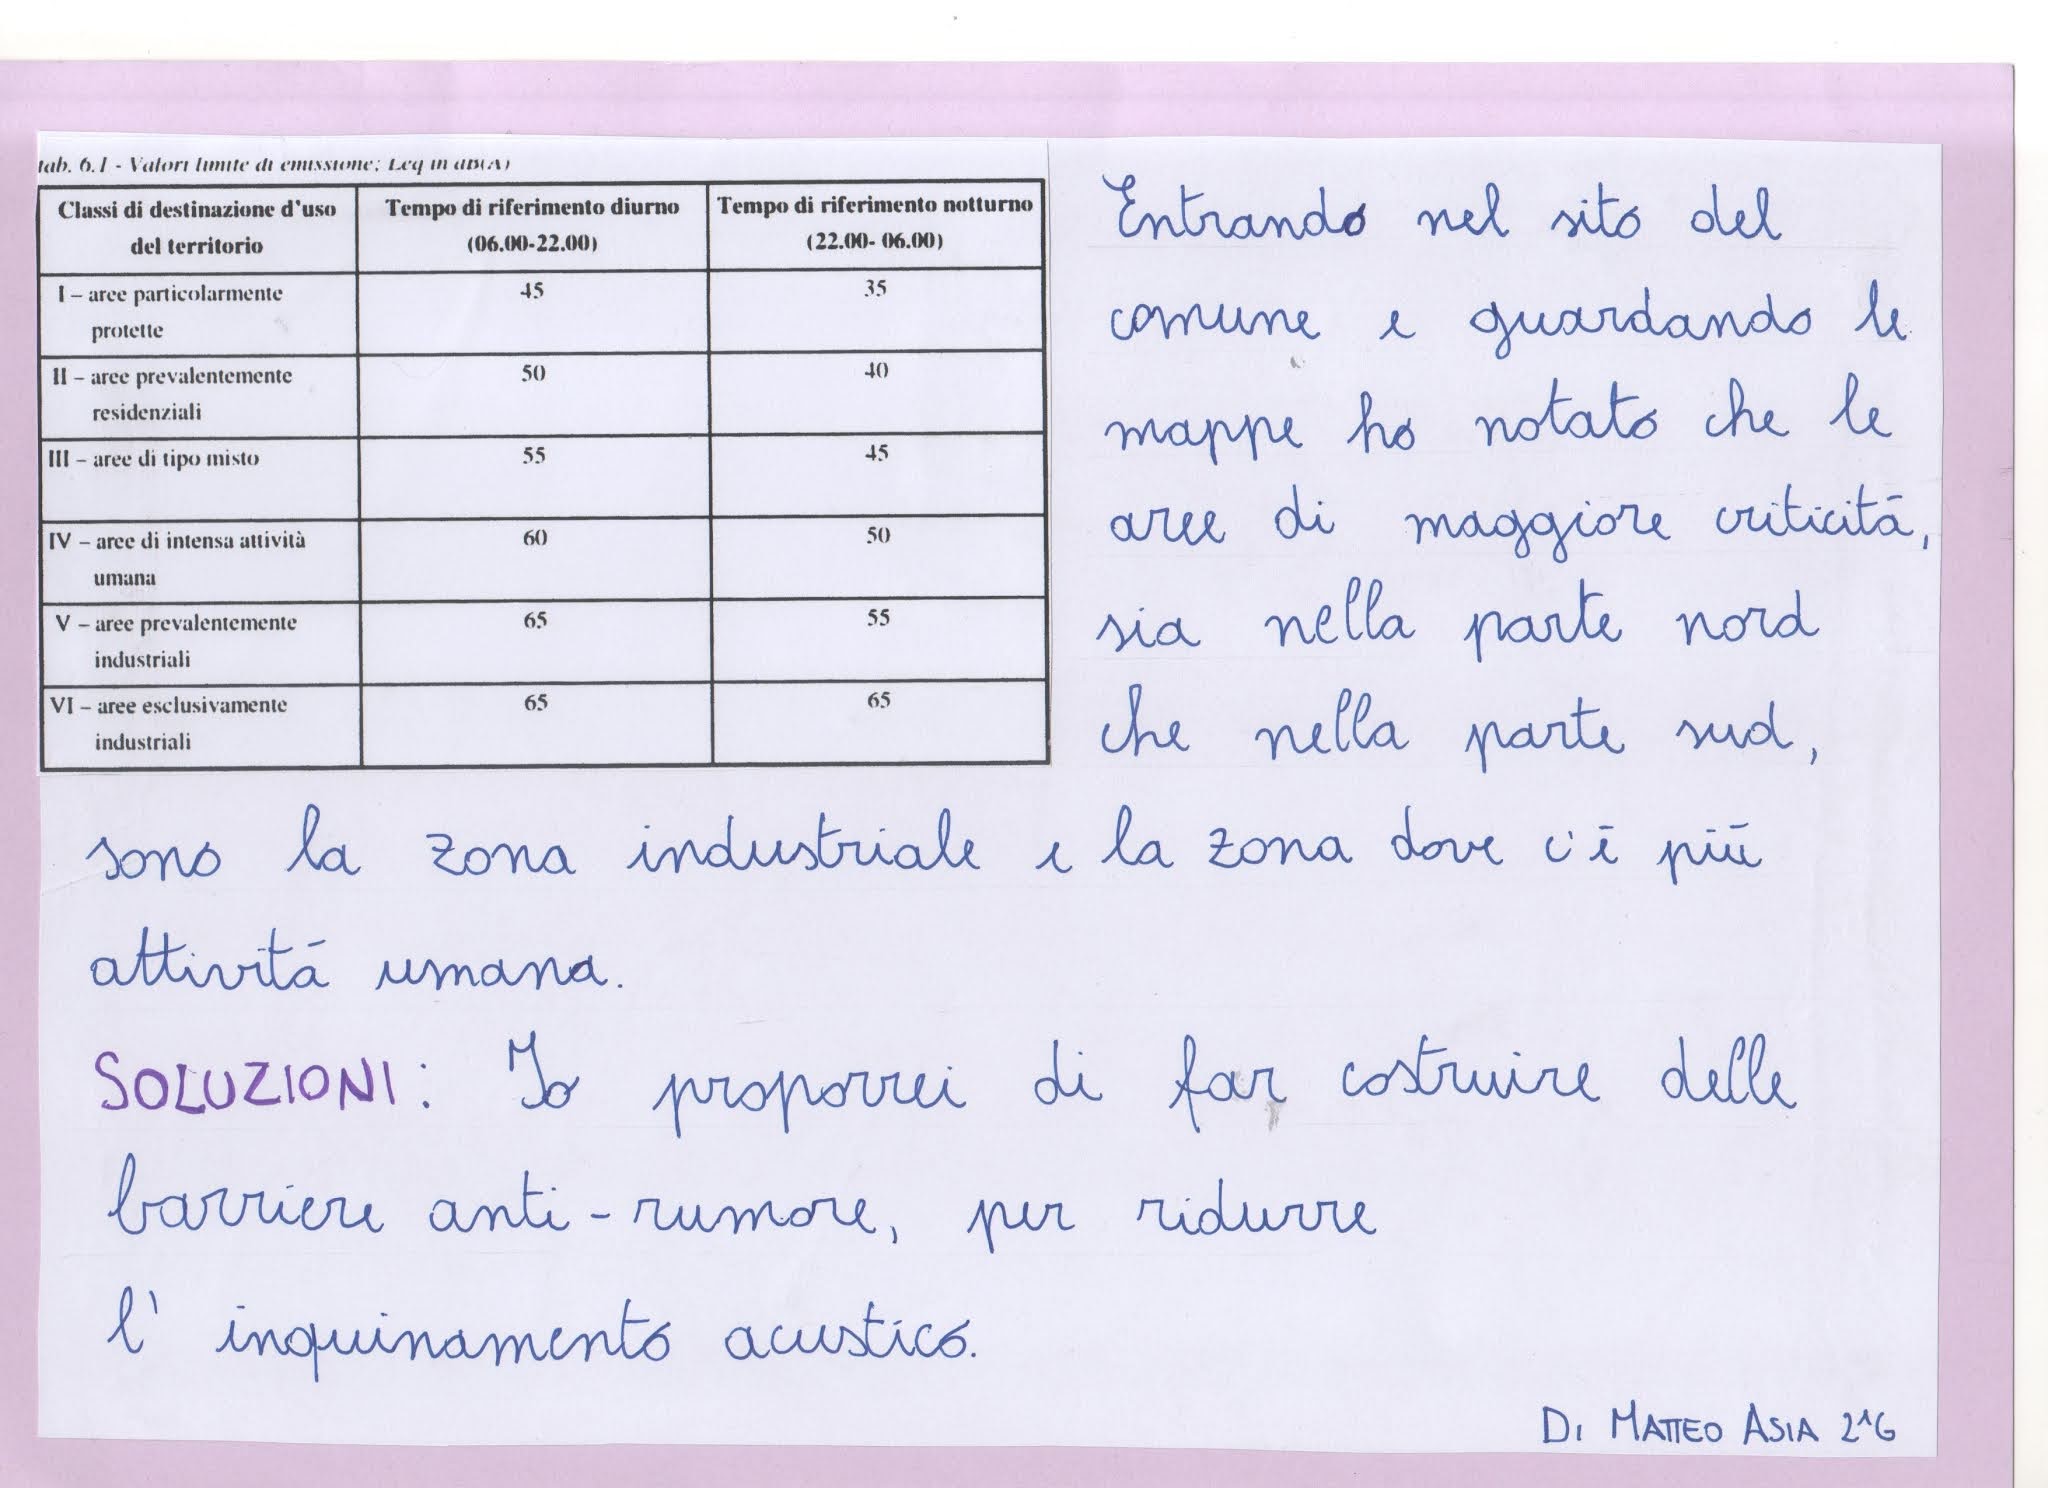 tab. 6.1 - Valori limite di emissione; Leq in dB(A)
Classi di destinazione d'uso del territorio | Tempo di riferimento diurno (06.00-22.00) | Tempo di riferimento notturno (22.00- 06.00)
I – aree particolarmente protette | 45 | 35
II – aree prevalentemente residenziali | 50 | 40
III – aree di tipo misto | 55 | 45
IV – aree di intensa attività umana | 60 | 50
V – aree prevalentemente industriali | 65 | 55
VI – aree esclusivamente industriali | 65 | 65
Entrando nel sito del
comune e guardando le
mappe ho notato che le
aree di maggiore criticità,
sia nella parte nord
che nella parte sud,
sono la zona industriale e la zona dove c'è più
attività umana.
SOLUZIONI: Io proporrei di far costruire delle
barriere anti-rumore, per ridurre
l' inquinamento acustico.
DI MATTEO ASIA 2^G